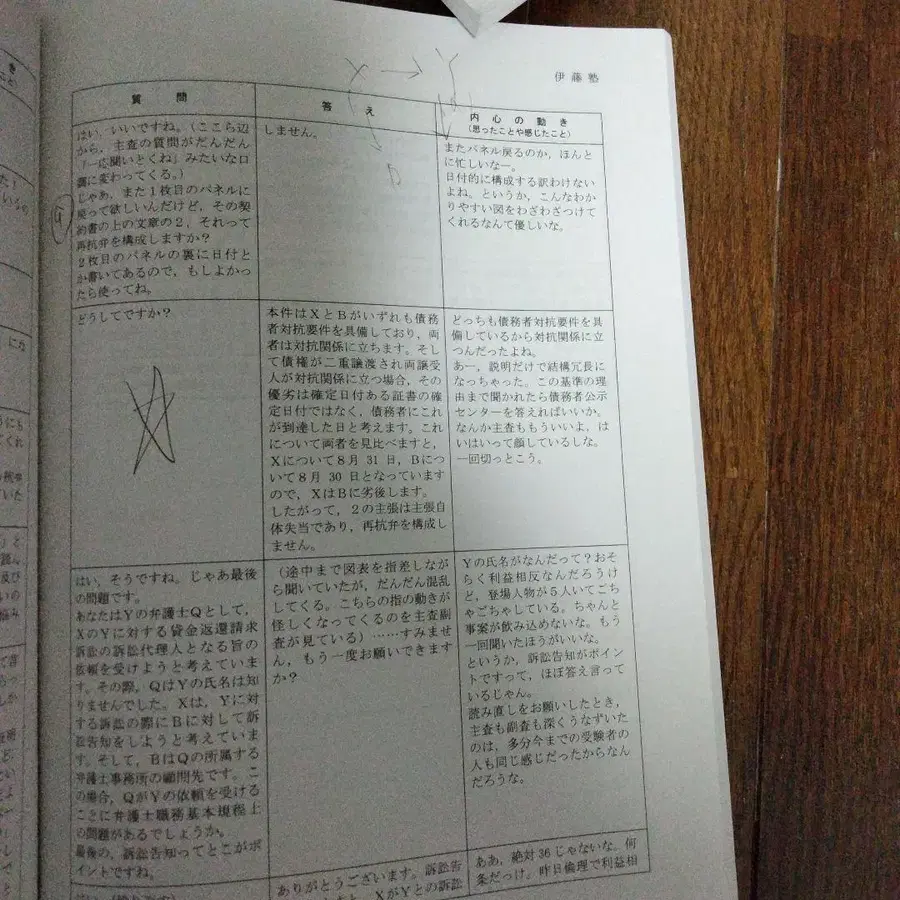 伊藤塾
質問
答え
内心の動き
(思ったことや感じたこと)
はい、いいですね。(ここら辺
から、主査の質問がだんだん
「一応聞いとくね」みたいな口
調に変わってくる。)
じゃあ、また1枚目のパネルに
戻って欲しいんだけど、その契
約書の上の文章の2、それって
再抗弁を構成しますか?
2枚目のパネルの裏に日付と
か書いてあるので、もしよかっ
たら使ってね。
しません。
またパネル戻るのか、ほんと
に忙しいなー。
日付的に構成する訳わけない
よね。というか、こんなわか
りやすい図をわざわざつけて
くれるなんて優しいな。
どうしてですか?
本件はXとBがいずれも債務
者対抗要件を具備しており、両
者は対抗関係に立ちます。そし
て債権が二重譲渡され両譲受
人が対抗関係に立つ場合、その
優劣は確定日付ある証書の確
定日付ではなく、債務者にこれ
が到達した日と考えます。これ
について両者を見比べますと、
Xについて8月 31 日、Bにつ
いて8月 30 日となっています
ので、XはBに劣後します。
したがって、2の主張は主張自
体失当であり、再抗弁を構成し
ません。
どっちも債務者対抗要件を具
備しているから対抗関係に立
つんだったよね。
あー、説明だけで結構冗長に
なっちゃった。この基準の理
由まで聞かれたら債務者公示
センターを答えればいいか。
なんか主査ももういいよ、は
いはいって顔しているしな。
一回切っとこう。
はい、そうですね。じゃあ最後
の問題です。
あなたはYの弁護士Qとして、
XのYに対する貸金返還請求
訴訟の訴訟代理人となる旨の
依頼を受けようと考えていま
す。その際、QはYの氏名は知
りませんでした。Xは、Yに対
する訴訟の際にBに対して訴
訟告知をしようと考えていま
す。そして、BはQの所属する
弁護士事務所の顧問先です。こ
の場合、QがYの依頼を受ける
ことに弁護士職務基本規程上
の問題があるでしょうか。
最後の、訴訟告知ってとこがポ
イントですね。
(途中まで図表を指差しなが
ら聞いていたが、だんだん混乱
してくる。こちらの指の動きが
怪しくなってくるのを主査副
査が見ている)……すみませ
ん、もう一度お願いできます
か?
Yの氏名がなんだって?おそ
らく利益相反なんだろうけ
ど、登場人物が5人いてごち
ゃごちゃしている。ちゃんと
事案が飲み込めないな。もう
一回聞いたほうがいいな。
というか、訴訟告知がポイン
トですって、ほぼ答え言って
いるじゃん。
読み直しをお願いしたとき、
主査も副査も深くうなずいた
のは、多分今までの受験者の
人も同じ感じだったからなん
だろうな。
ありがとうございます。訴訟告
XがYとの訴訟
ああ、絶対 36 じゃないな。何
条だっけ。昨日倫理で利益相